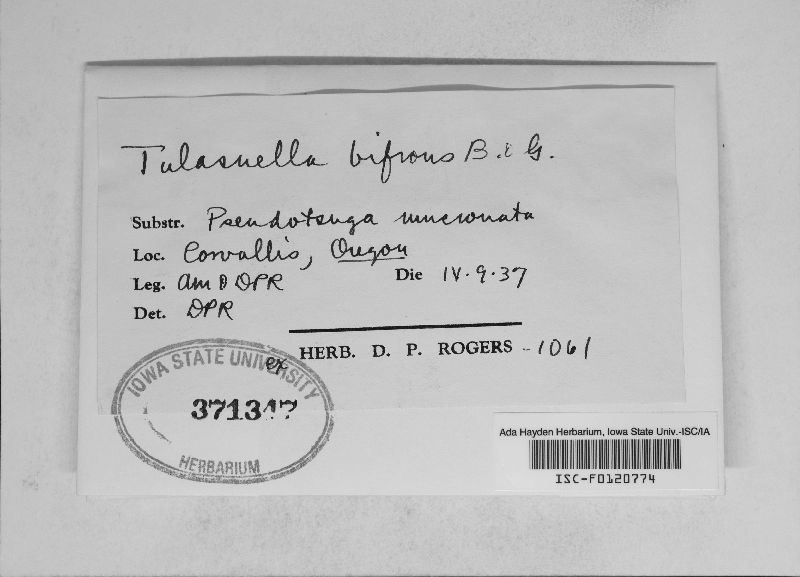 Tulasnella bifrons B. & G.
Substr. Pseudotsuga mucronata
Loc. Corvallis, Oregon
Leg. AM & DPR Die IV.9.37
Det. DPR
ex HERB. D. P. ROGERS - 1061
IOWA STATE UNIVERSITY
371347
HERBARIUM
Ada Hayden Herbarium, Iowa State Univ.-ISC/IA
ISC-F0120774